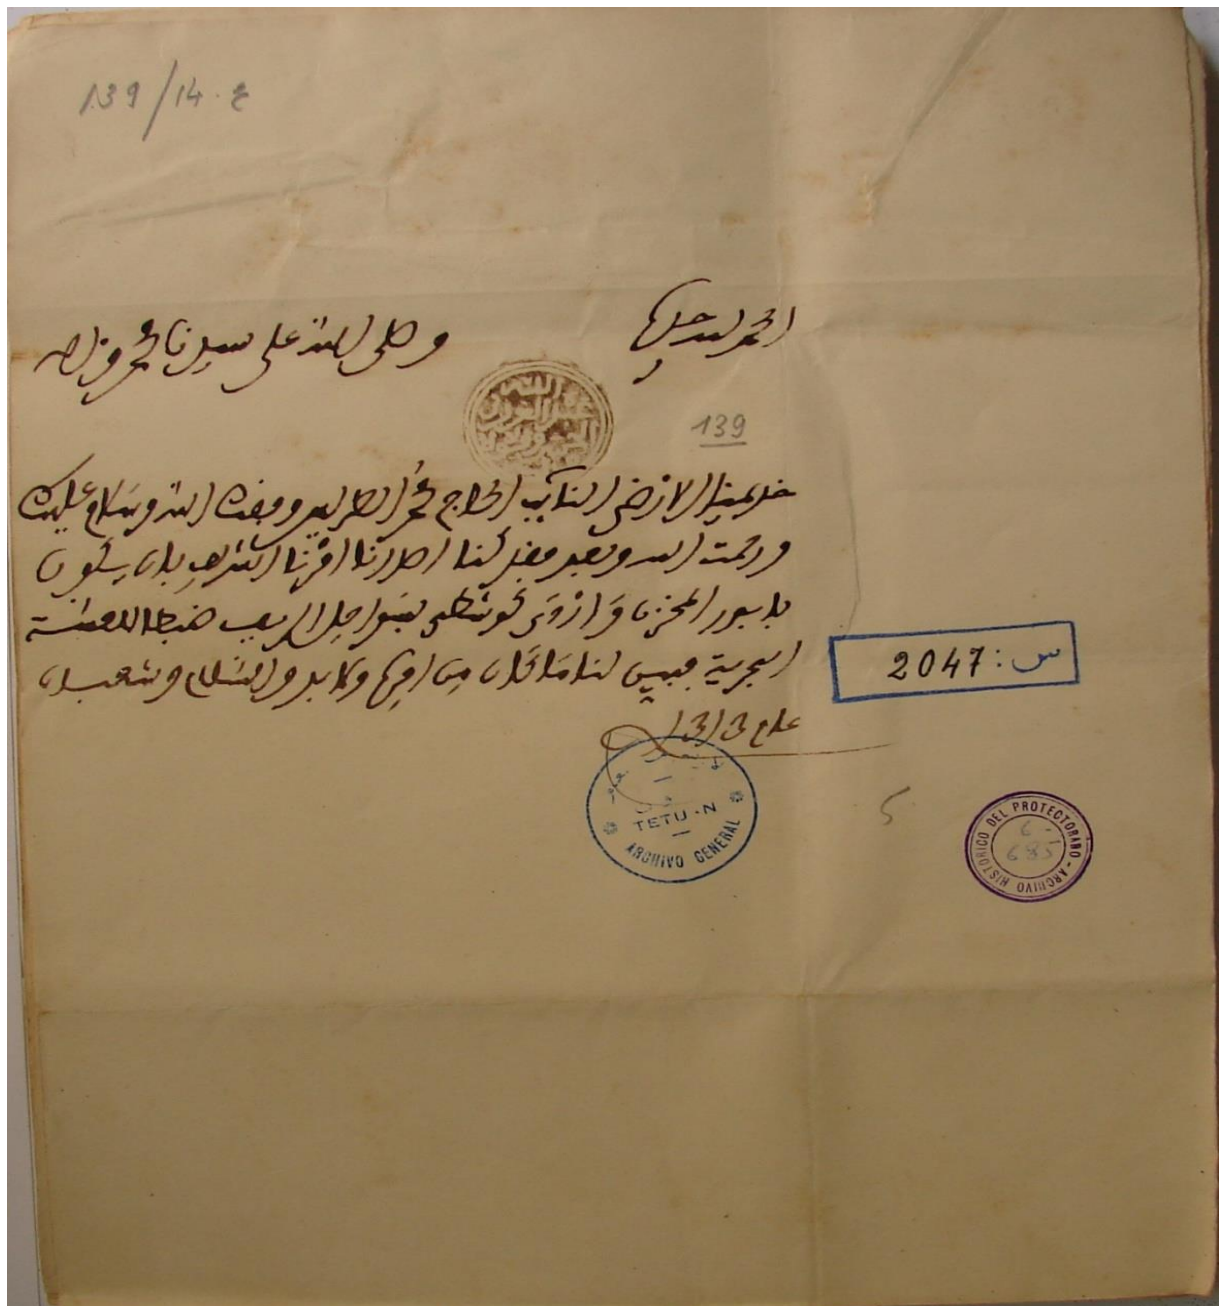 139/14.ع
الحمد لله وحده
وصلى الله على سيدنا محمد وآله
عبد العزيز
139
خديمنا الارضى النائب الحاج محمد الطريس وفقك الله وسلام عليك
ورحمت الله وبعد فقد كنا اصدرنا امرنا الشريف بان يكون
بابور المخزن وازوى كوشطى بسواحل الريف ضبطا للعسة
البحرية فبين لنا ما كان من امره ولا بد والسلام شعبان
عام
س: 2047
TETU-N
ARCHIVO GENERAL
ARCHIVO HISTORICO DEL PROTECTORADO
685